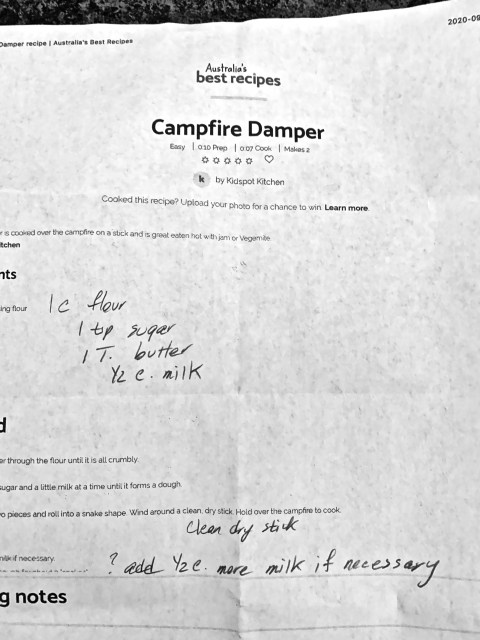 2020-09
Damper recipe | Australia's Best Recipes
Australia's
best recipes
Campfire Damper
Easy | 0:10 Prep | 0:07 Cook | Makes 2
k by Kidspot Kitchen
Cooked this recipe? Upload your photo for a chance to win. Learn more.
r is cooked over the campfire on a stick and is great eaten hot with jam or Vegemite.
itchen
nts
ing flour 1 c flour
1 tsp sugar
1 T. butter
1/2 c. milk
d
er through the flour until it is all crumbly.
sugar and a little milk at a time until it forms a dough.
o pieces and roll into a snake shape. Wind around a clean, dry stick. Hold over the campfire to cook.
Clean dry stick
milk if necessary.
? add 1/2 c. more milk if necessary
g notes